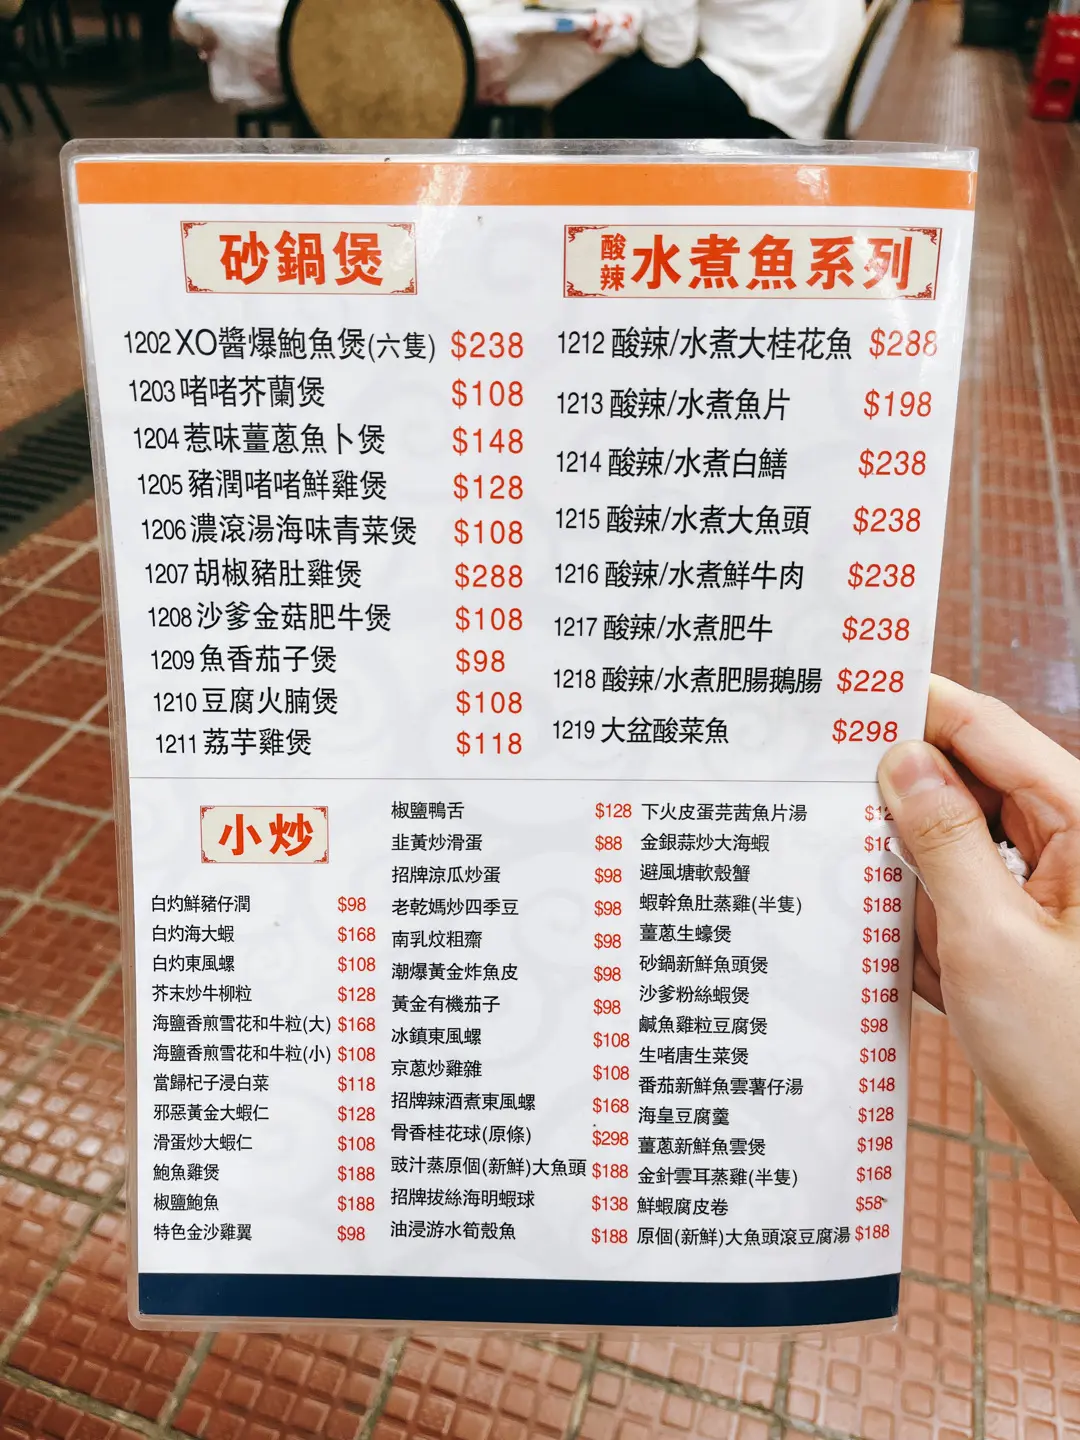 砂鍋煲
1202 XO醬爆鮑魚煲(六隻) $238
1203 啫啫芥蘭煲 $108
1204 惹味薑蔥魚卜煲 $148
1205 豬潤啫啫鮮雞煲 $128
1206 濃滾湯海味青菜煲 $108
1207 胡椒豬肚雞煲 $288
1208 沙爹金菇肥牛煲 $108
1209 魚香茄子煲 $98
1210 豆腐火腩煲 $108
1211 荔芋雞煲 $118
酸辣 水煮魚系列
1212 酸辣/水煮大桂花魚 $288
1213 酸辣/水煮魚片 $198
1214 酸辣/水煮白鱔 $238
1215 酸辣/水煮大魚頭 $238
1216 酸辣/水煮鮮牛肉 $238
1217 酸辣/水煮肥牛 $238
1218 酸辣/水煮肥腸鵝腸 $228
1219 大盆酸菜魚 $298
小炒
白灼鮮豬仔潤 $98
白灼海大蝦 $168
白灼東風螺 $108
芥末炒牛柳粒 $128
海鹽香煎雪花和牛粒(大) $168
海鹽香煎雪花和牛粒(小) $108
當歸杞子浸白菜 $118
邪惡黃金大蝦仁 $128
滑蛋炒大蝦仁 $108
鮑魚雞煲 $188
椒鹽鮑魚 $188
特色金沙雞翼 $98
椒鹽鴨舌 $128
韭黃炒滑蛋 $88
招牌涼瓜炒蛋 $98
老乾媽炒四季豆 $98
南乳炆粗齋 $98
潮爆黃金炸魚皮 $98
黃金有機茄子 $98
冰鎮東風螺 $108
京蔥炒雞雜 $108
招牌辣酒煮東風螺 $168
骨香桂花球(原條) $298
豉汁蒸原個(新鮮)大魚頭 $188
招牌拔絲海明蝦球 $138
油浸游水筍殼魚 $188
下火皮蛋芫茜魚片湯 $12
金銀蒜炒大海蝦 $16
避風塘軟殼蟹 $168
蝦幹魚肚蒸雞(半隻) $188
薑蔥生蠔煲 $168
砂鍋新鮮魚頭煲 $198
沙爹粉絲蝦煲 $168
鹹魚雞粒豆腐煲 $98
生啫唐生菜煲 $108
番茄新鮮魚雲薯仔湯 $148
海皇豆腐羹 $128
薑蔥新鮮魚雲煲 $198
金針雲耳蒸雞(半隻) $168
鮮蝦腐皮卷 $58
原個(新鮮)大魚頭滾豆腐湯 $188